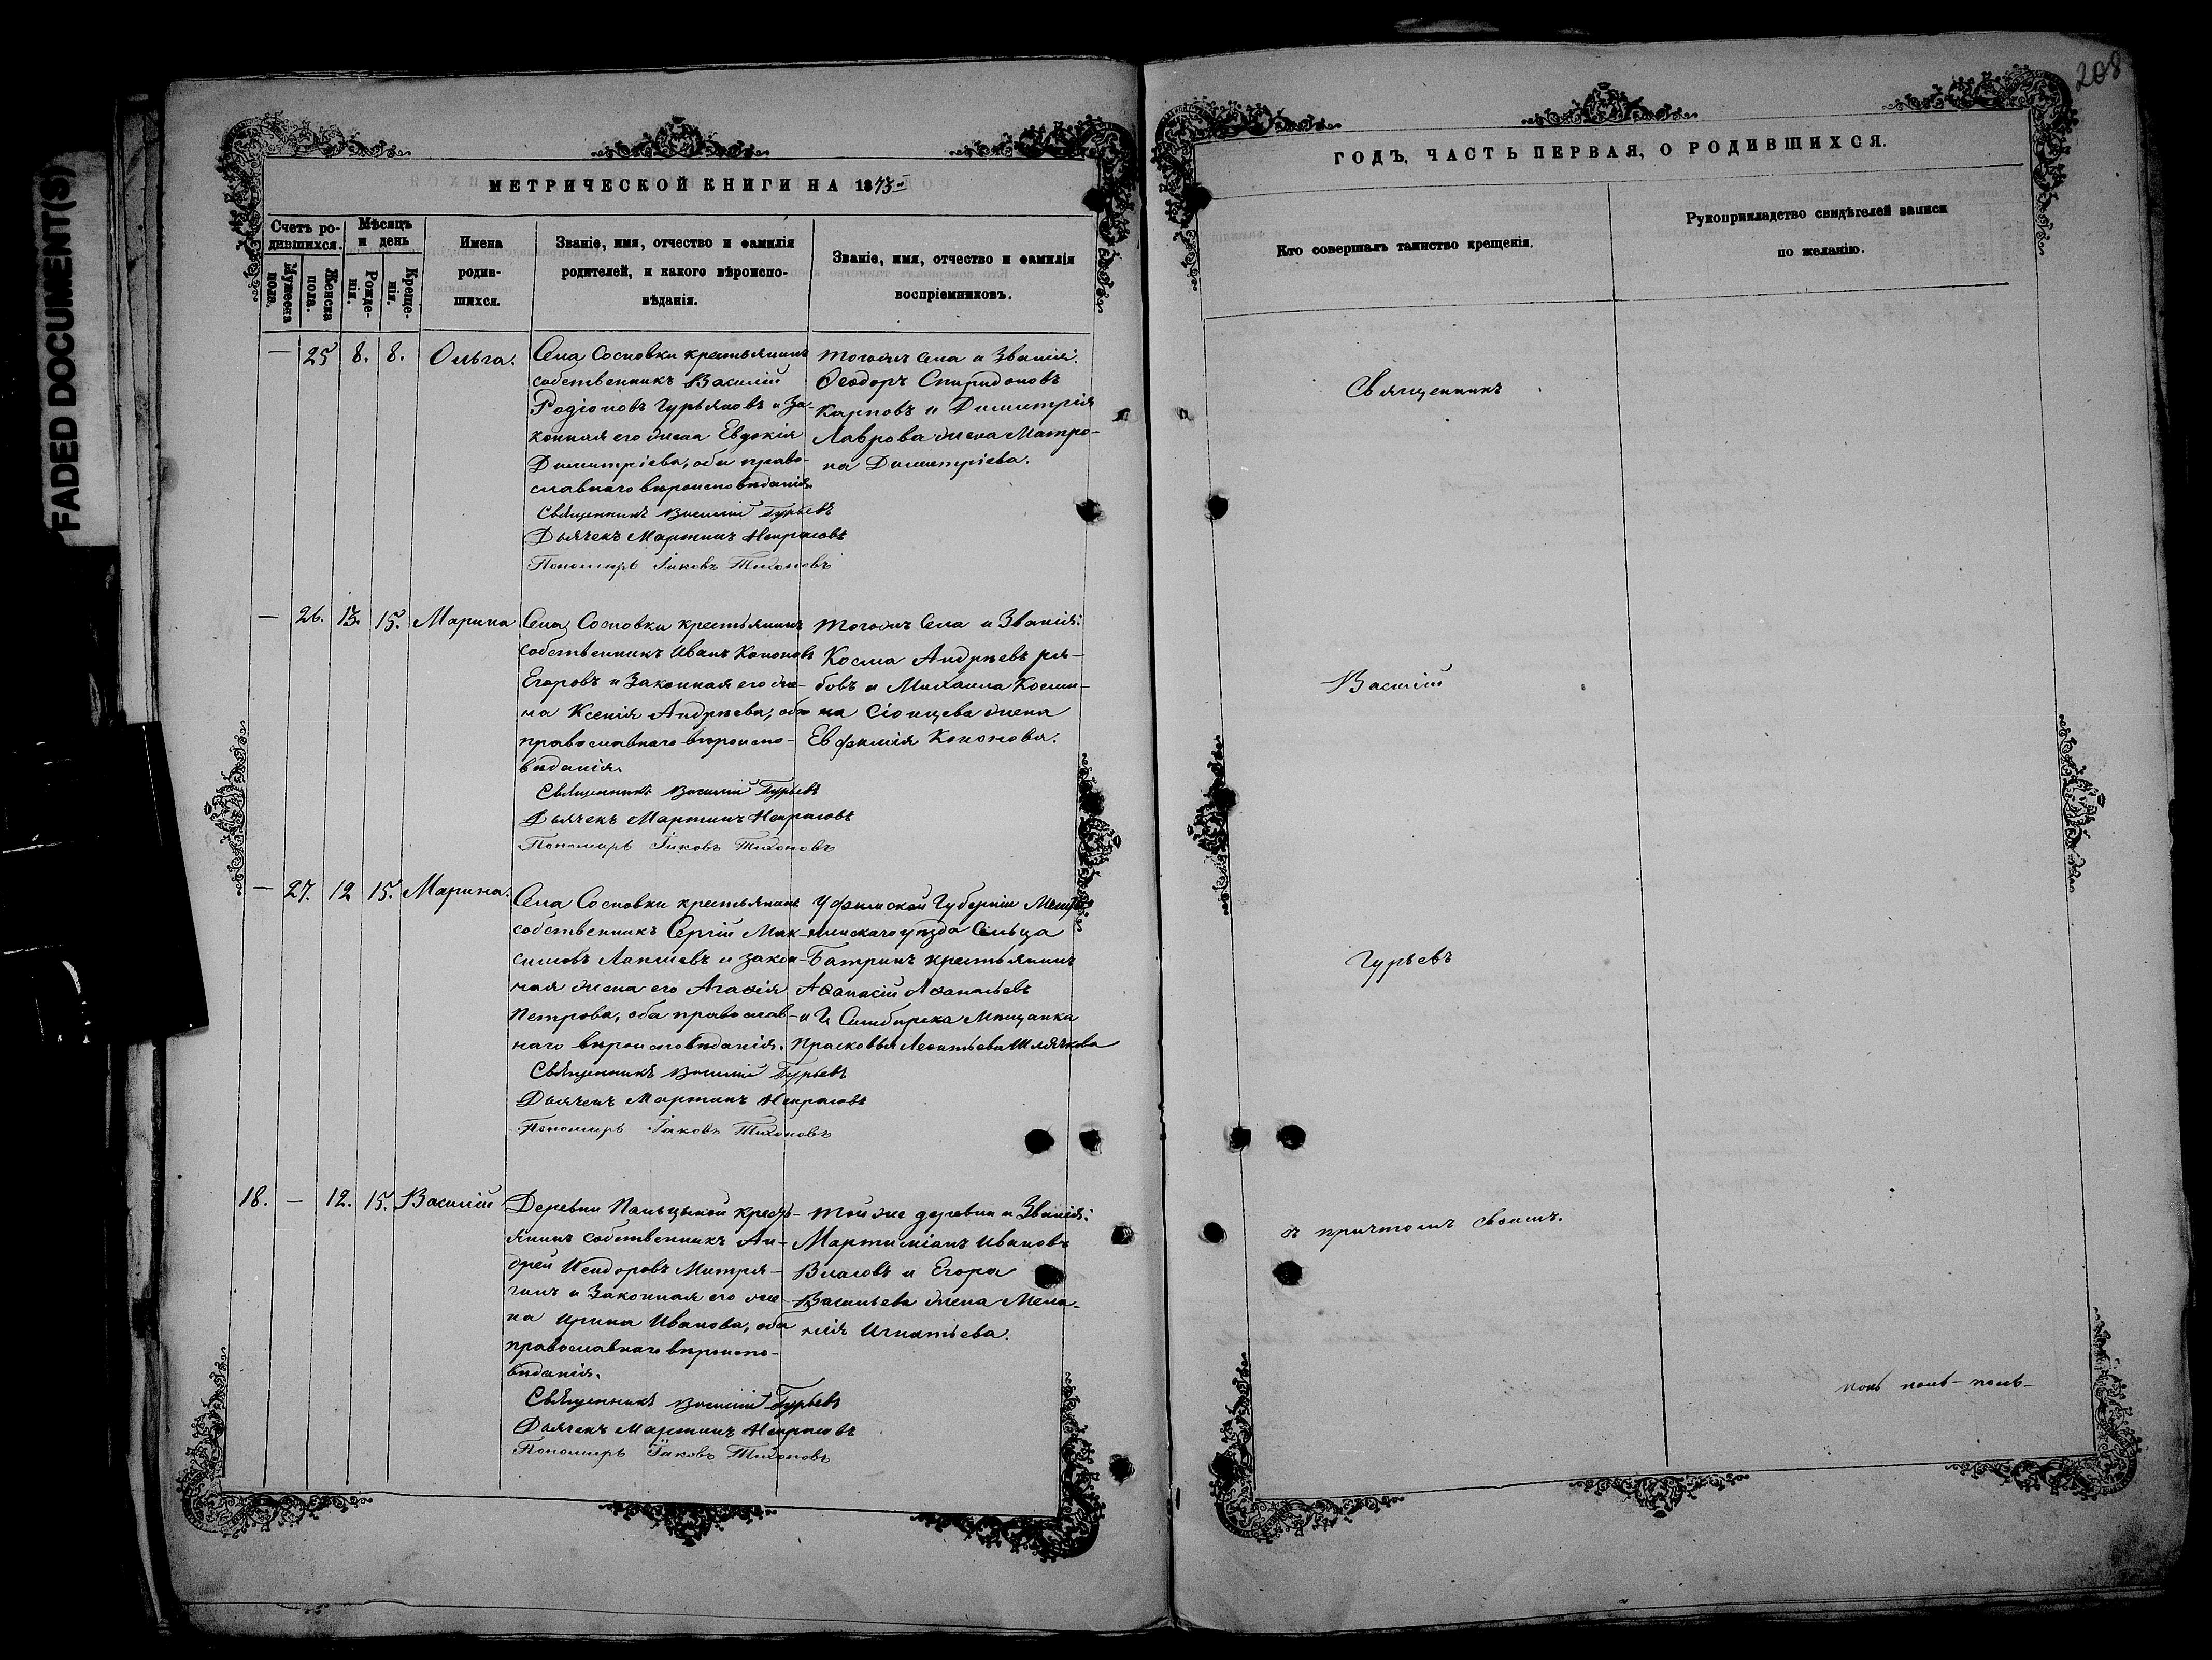 FADED DOCUMENT(S)
208
МЕТРИЧЕСКОЙ КНИГИ НА 1873
ГОДЪ, ЧАСТЬ ПЕРВАЯ, О РОДИВШИХСЯ.
Счетъ ро-
дившихся.
Мужеска
пола.
Женска
пола.
Мѣсяцъ
и день
Рожде-
нія.
Креще-
нія.
Имена
родив-
шихся.
Званіе, имя, отчество и фамилія
родителей, и какого вѣроиспо-
вѣданія.
Званіе, имя, отчество и фамилія
воспріемниковъ.
Кто совершалъ таинство крещенія.
Рукоприкладство свидѣтелей записи
по желанію.
— 25 8. 8. Ольга.
Села Сосновки крестьянинъ
собственникъ Василій
Родіоновъ Гурьяновъ и за-
конная его жена Евдокія
Димитріева, оба право-
славнаго вѣроисповѣданія.
Священникъ Василій Гурьевъ
Дьячекъ Мартинъ Некрасовъ
Пономарь Іаковъ Тихоновъ
Тогожъ села и званія:
Ѳеодоръ Спиридоновъ
Карповъ и Димитрія
Лаврова жена Матро-
на Димитріева.
— 26. 13. 15. Марина
Села Сосновки крестьянинъ
собственникъ Иванъ Кононовъ
Егоровъ и законная его же-
на Ксенія Андрѣева, оба
православнаго вѣроиспо-
вѣданія.
Священникъ Василій Гурьевъ
Дьячекъ Мартинъ Некрасовъ
Пономарь Іаковъ Тихоновъ
Тогожъ села и званія:
Косма Андрѣевъ Ря-
бовъ и Михаила Косми-
на жена
Евфимія Кононова.
— 27. 12 15. Марина.
Села Сосновки крестьянинъ
собственникъ Сергій Мак-
симовъ Лапшевъ и закон-
ная жена его Агафія
Петрова, оба православ-
наго вѣроисповѣданія.
Священникъ Василій Гурьевъ
Дьячекъ Мартинъ Некрасовъ
Пономарь Іаковъ Тихоновъ
Уфимской Губерніи Мензе-
линскаго уѣзда Сельца
Батракъ крестьянинъ
Аѳанасій Аѳанасьевъ
и Г. Симбирска Мѣщанка
Прасковья Леонтьева Шлячкова
18. — 12. 15. Василій
Деревни Пальцыной кресть-
янинъ собственникъ Ан-
дрей Исидоровъ Митря-
гинъ и законная его же-
на Ирина Иванова, оба
православнаго вѣроиспо-
вѣданія.
Священникъ Василій Гурьевъ
Дьячекъ Мартинъ Некрасовъ
Пономарь Іаковъ Тихоновъ
Той же деревни и званія:
Мартиміанъ Ивановъ
Власовъ и Егора
Васильева жена Мела-
нія Игнатьева.
Священникъ
Василій
Гурьевъ
съ причтомъ своимъ.